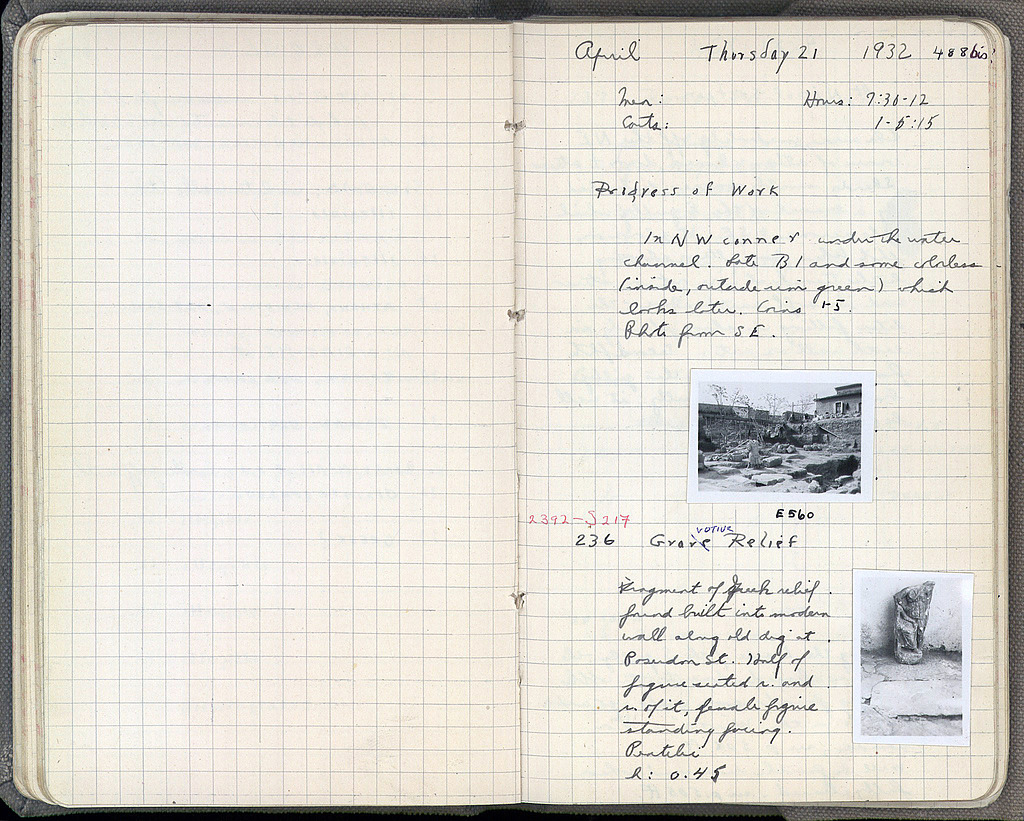 April Thursday 21 1932 488 bis
Men: Hours: 7:30-12
Costs: 1-5:15
Progress of Work
In NW corner under the water
channel. Late B1 and some colorless
(inside, outside rim green) which
looks later. Coins 1-5.
Photo from SE.
E560
2392-S 217
votive
236 Grave Relief
Fragment of Greek relief
found built into modern
wall along old dig at
Poseidon St. Half of
figure seated r. and
r. of it, female figure
standing facing.
h: 0.45